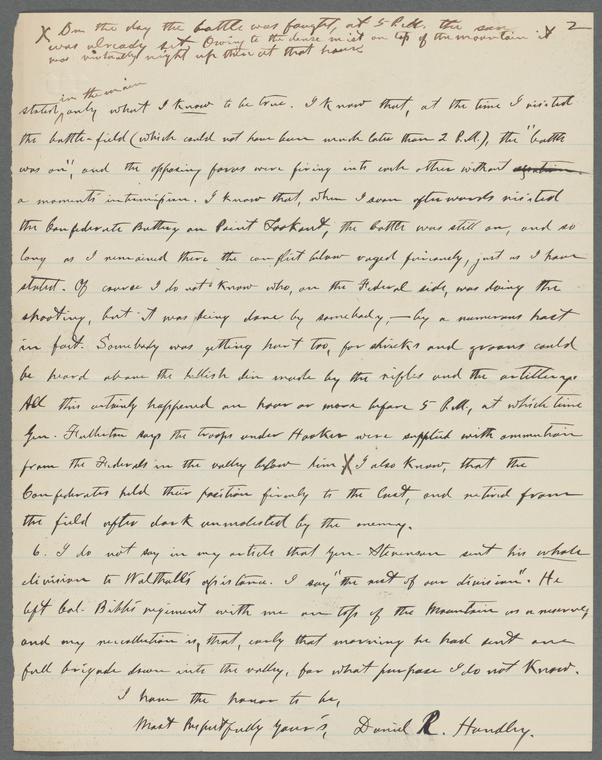 X On the day the battle was fought, at 5 P.M. the sun 2
was already set. Owing to the dense mist on top of the mountain it X
was virtually night up there at that hour
in the main
stated, only what I know to be true. I know that, at the time I visited
the battle-field (which could not have been much later than 2 P.M.), the "battle
was on", and the opposing forces were firing into each other without
a moments intermission. I know that, when I soon afterwards visited
the Confederate Battery on Point Lookout, the battle was still on, and so
long as I remained there the conflict below raged furiously, just as I have
stated. Of course I do not know who, on the Federal side, was doing the
shooting, but it was being done by somebody, — by a numerous host
in fact. Somebody was getting hurt too, for shrieks and groans could
be heard above the hellish din made by the rifles and the artillery.
All this certainly happened an hour or more before 5 P.M., at which time
Gen. Fullerton says the troops under Hooker were supplied with ammunition
from the Federals in the valley below him X I also know, that the
Confederates held their position firmly to the last, and retired from
the field after dark unmolested by the enemy.
6. I do not say in my article that Gen. Stevenson sent his whole
division to Walthall's assistance. I say "the rest of our division". He
left Col. Bibb's regiment with me on top of the Mountain as a reserve,
and my recollection is, that, early that morning he had sent one
full brigade down into the valley, for what purpose I do not know.
I have the honor to be,
Most Respectfully Your's, Daniel R. Hundley.